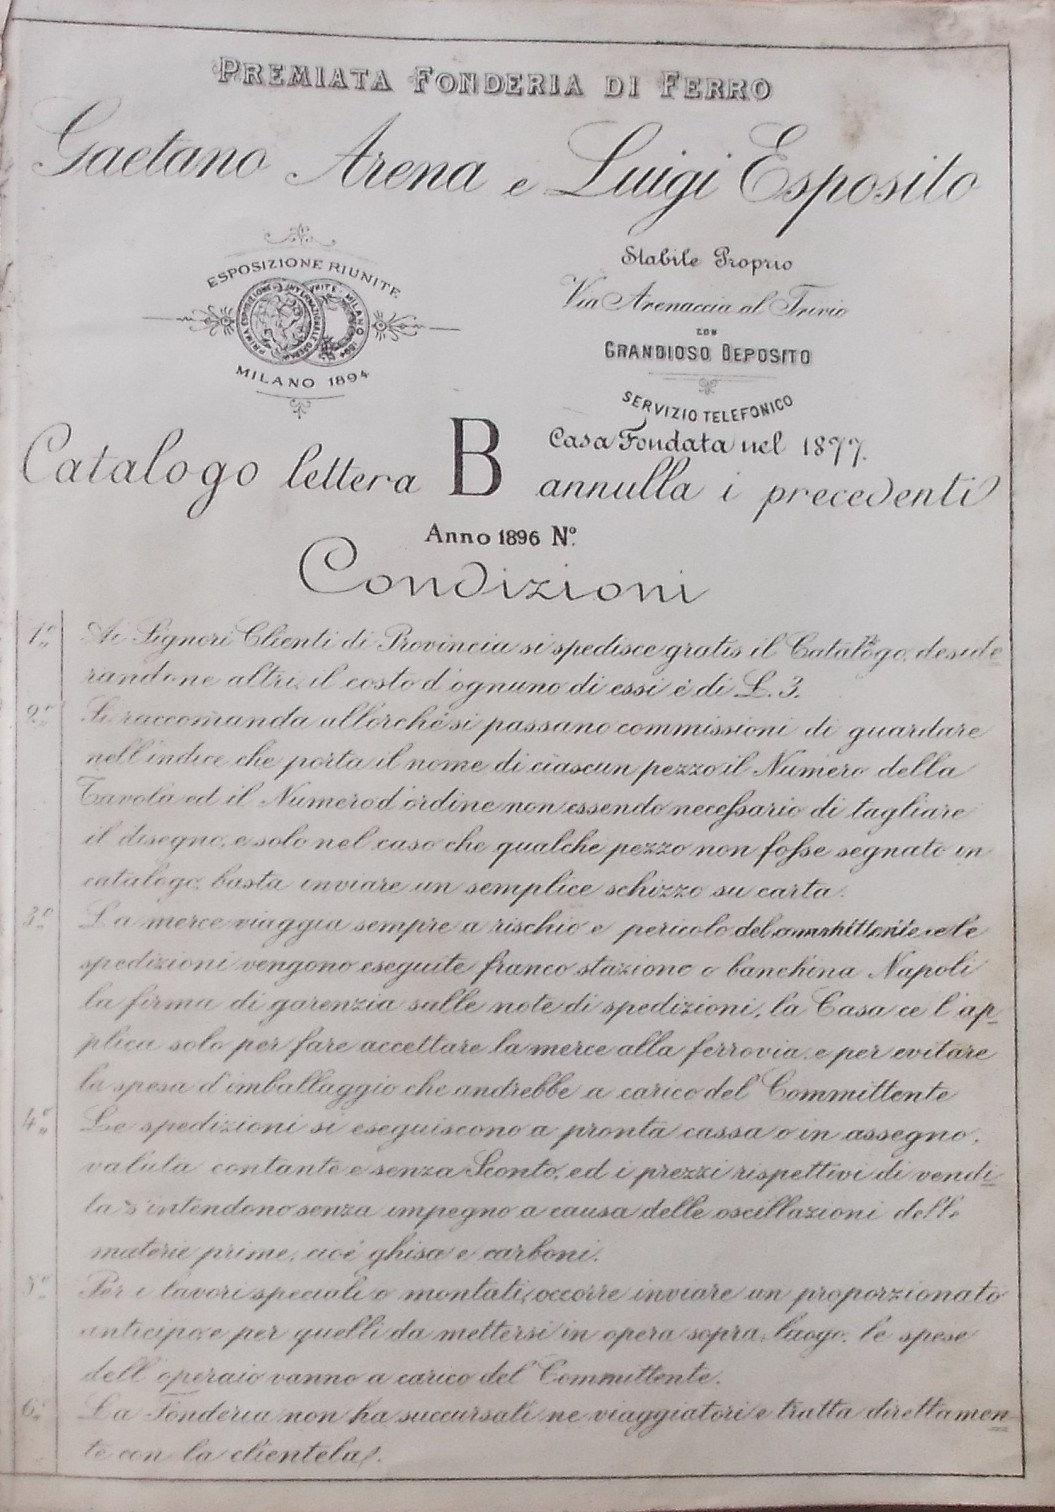 PREMIATA FONDERIA DI FERRO
Gaetano Arena e Luigi Esposito
ESPOSIZIONE RIUNITE
MILANO 1894
Stabile Proprio
Via Arenaccia al Trivio
CON
GRANDIOSO DEPOSITO
SERVIZIO TELEFONICO
Casa Fondata nel 1877.
Catalogo lettera B annulla i precedenti
Anno 1896 Nº.
Condizioni
1º Ai Signori Clienti di Provincia si spedisce gratis il Catalogo, deside
randone altri, il costo d'ognuno di essi è di L. 3.
2º Si raccomanda allorchè si passano commissioni di guardare
nell'indice che porta il nome di ciascun pezzo il Numero della
Tavola ed il Numero d'ordine non essendo necessario di tagliare
il disegno, e solo nel caso che qualche pezzo non fosse segnato in
catalogo, basta inviare un semplice schizzo su carta.
3º La merce viaggia sempre a rischio e pericolo del committente e le
spedizioni vengono eseguite franco stazione o banchina Napoli
la firma di garenzia sulle note di spedizioni, la Casa ce l'ap
plica solo per fare accettare la merce alla ferrovia, e per evitare
la spesa d'imballaggio che andrebbe a carico del Committente
4º Le spedizioni si eseguiscono a pronta cassa o in assegno,
valuta contante e senza Sconto, ed i prezzi rispettivi di vendi
ta s'intendono senza impegno a causa delle oscillazioni delle
materie prime, cioè ghisa e carboni.
5º Per i lavori speciali o montati, occorre inviare un proporzionato
anticipo, e per quelli da mettersi in opera sopra luogo, le spese
dell'operaio vanno a carico del Committente.
6º La Fonderia non ha succursali ne viaggiatori e tratta direttamen
te con la clientela.